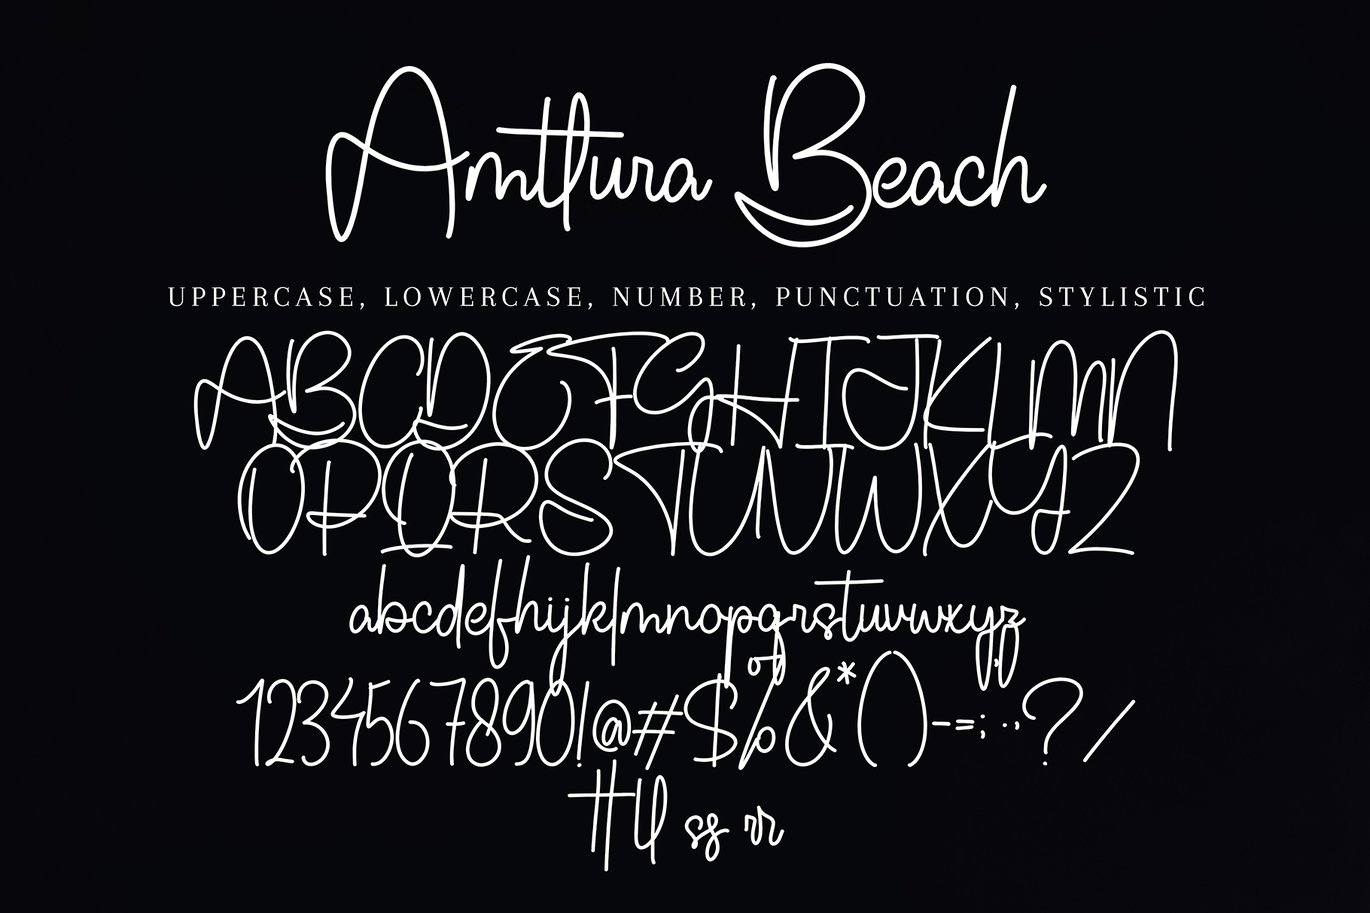 Amttura Beach
UPPERCASE, LOWERCASE, NUMBER, PUNCTUATION, STYLISTIC
ABCDEFGHIJKLMN
OPQRSTUVWXYZ
abcdefhijklmnopqrstuvwxyz
1234567890!@#$%&*()-=;:.,?/
tt ll ss rr